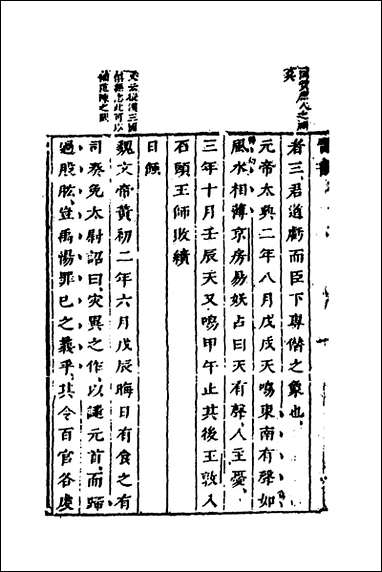 者三君道虧而臣下專僭之象也
元帝太興二年八月戊戌天鳴東南有聲如
風水相薄京房易妖占曰天有聲人主憂
三年十月壬辰天又鳴甲午止其後王敦入
石頭王師敗績
日蝕
云後漢三國
志此可以
補范陳之闕
魏文帝黃初二年六月戊辰晦日有食之有
司奏免太尉詔曰災異之作以譴元首而歸
過股肱豈禹湯罪己之義乎其令百官各虔